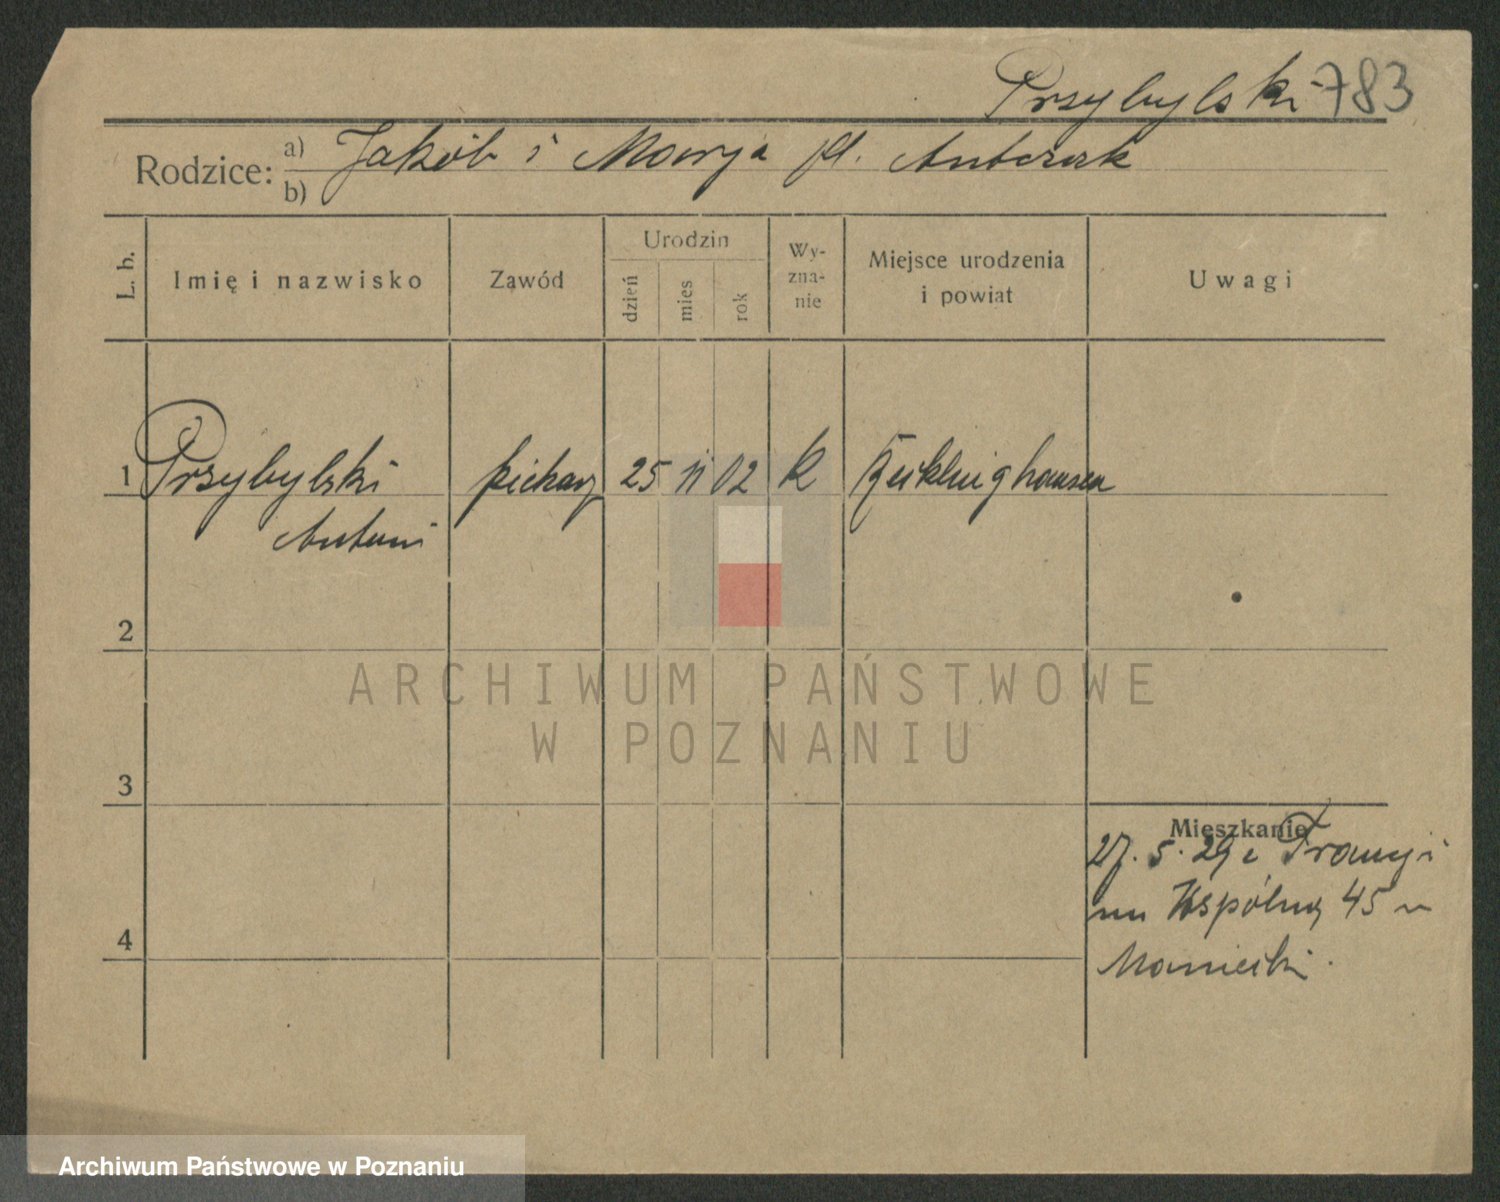 Przybylski 783
Rodzice: a) Jakób i Marja pl. Antczak
b)
L. b.
Imię i nazwisko
Zawód
Urodzin
dzień
mies
rok
Wy-
zna-
nie
Miejsce urodzenia
i powiat
Uwagi
1 Przybylski piekarz 25 11 02 k
Antoni
2
ARCHIWUM PAŃSTWOWE
W POZNANIU
3
Mieszkanie
27. 5. 29 z Francji
na Wspólną 45
4
Archiwum Państwowe w Poznaniu